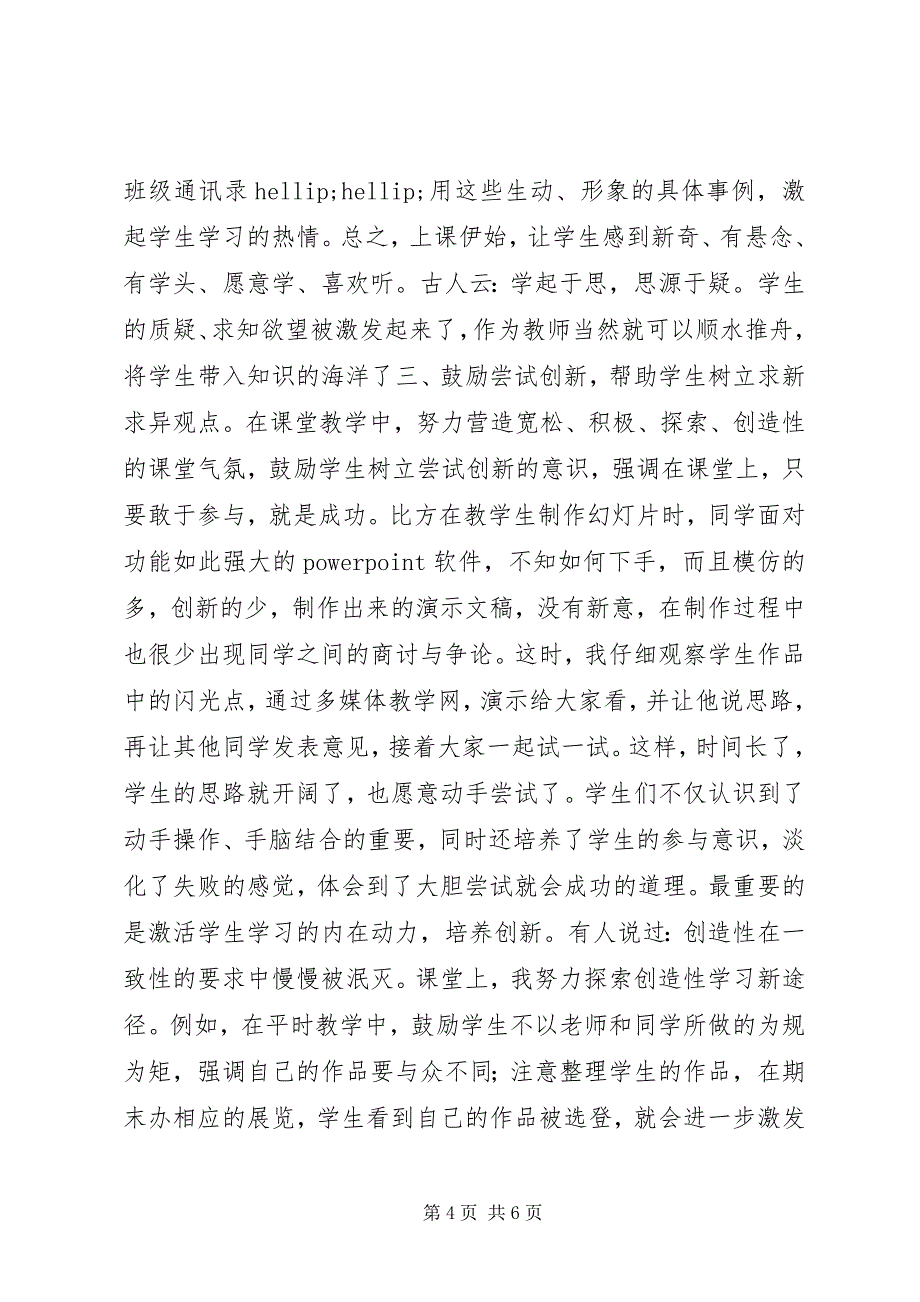 班级通讯录 hellip;hellip;用这些生动、形象的具体事例，激
起学生学习的热情。总之，上课伊始，让学生感到新奇、有悬念、
有学头、愿意学、喜欢听。古人云：学起于思，思源于疑。学生
的质疑、求知欲望被激发起来了，作为教师当然就可以顺水推舟，
将学生带入知识的海洋了三、鼓励尝试创新，帮助学生树立求新
求异观点。在课堂教学中，努力营造宽松、积极、探索、创造性
的课堂气氛，鼓励学生树立尝试创新的意识，强调在课堂上，只
要敢于参与，就是成功。比方在教学生制作幻灯片时，同学面对
功能如此强大的 powerpoint 软件，不知如何下手，而且模仿的
多，创新的少，制作出来的演示文稿，没有新意，在制作过程中
也很少出现同学之间的商讨与争论。这时，我仔细观察学生作品
中的闪光点，通过多媒体教学网，演示给大家看，并让他说思路，
再让其他同学发表意见，接着大家一起试一试。这样，时间长了，
学生的思路就开阔了，也愿意动手尝试了。学生们不仅认识到了
动手操作、手脑结合的重要，同时还培养了学生的参与意识，淡
化了失败的感觉，体会到了大胆尝试就会成功的道理。最重要的
是激活学生学习的内在动力，培养创新。有人说过：创造性在一
致性的要求中慢慢被泯灭。课堂上，我努力探索创造性学习新途
径。例如，在平时教学中，鼓励学生不以老师和同学所做的为规
为矩，强调自己的作品要与众不同；注意整理学生的作品，在期
末办相应的展览，学生看到自己的作品被选登，就会进一步激发
第 4 页 共 6 页